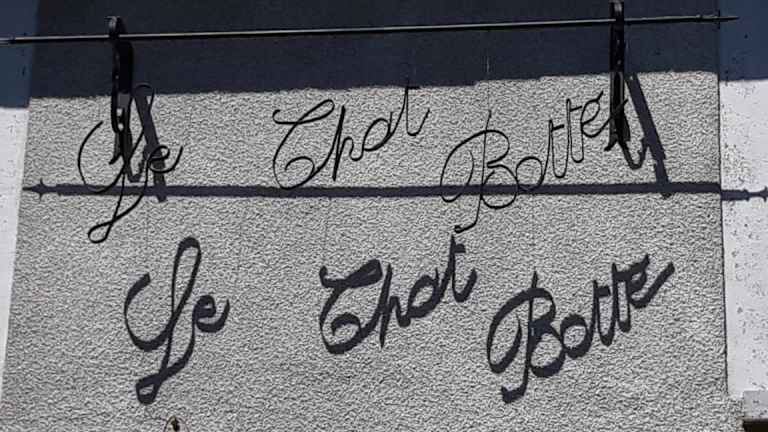 Le Chat Botté
Le Chat Botte